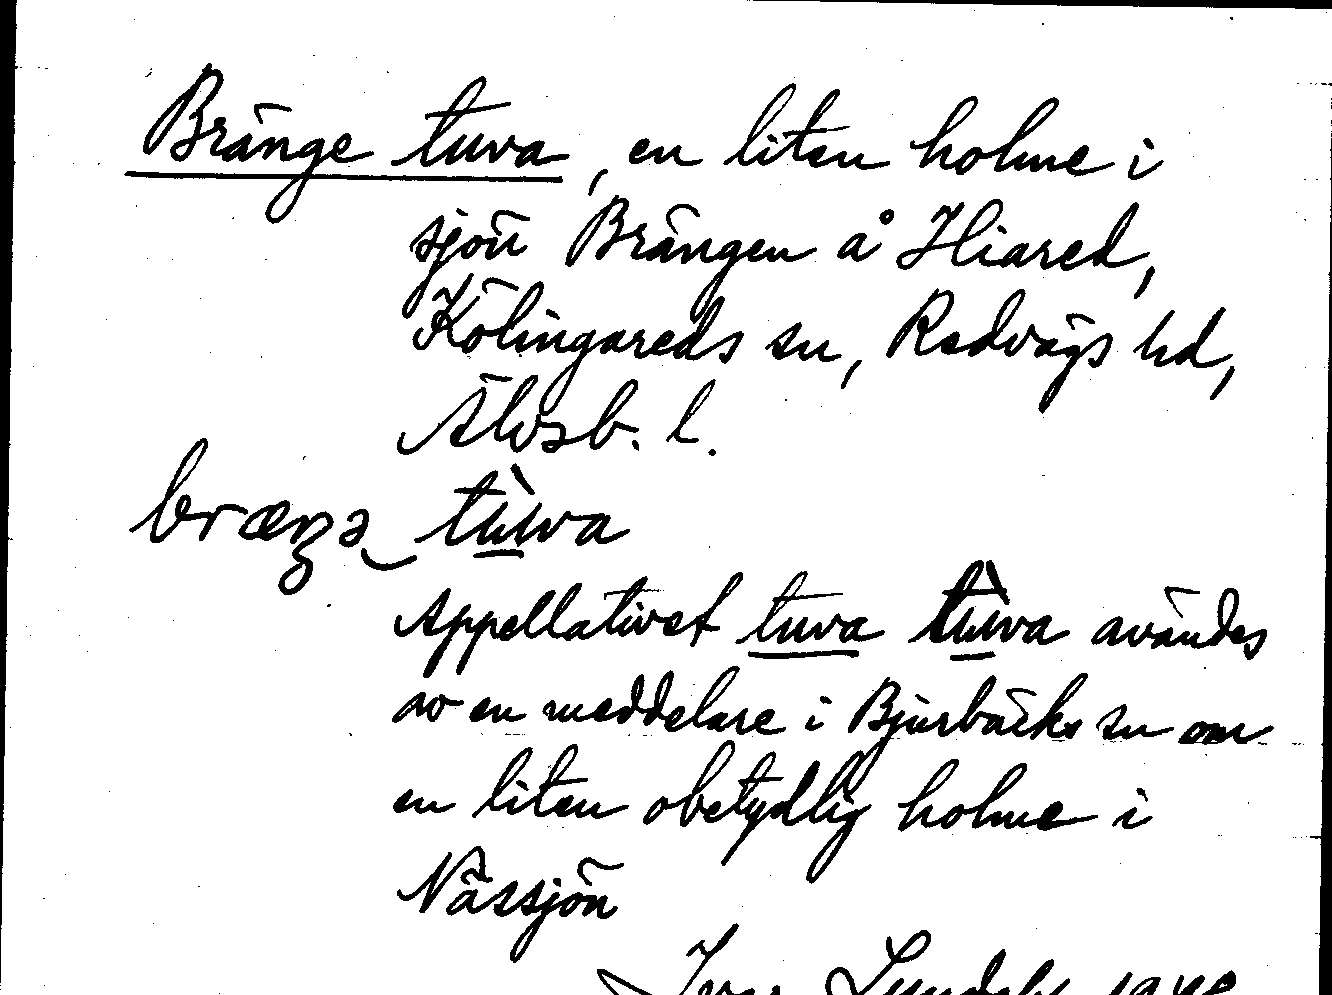 Bränge tuva, en liten holme i
sjön Brängen å Hiared,
Kölingareds sn, Redvägs hd,
Älvsb. l.
bræŋə tùwa
Appellativet tuva tùwa avändes
av en meddelare i Bjurbäcks sn om
en liten obetydlig holme i
Nässjön
Ivar Lundahl